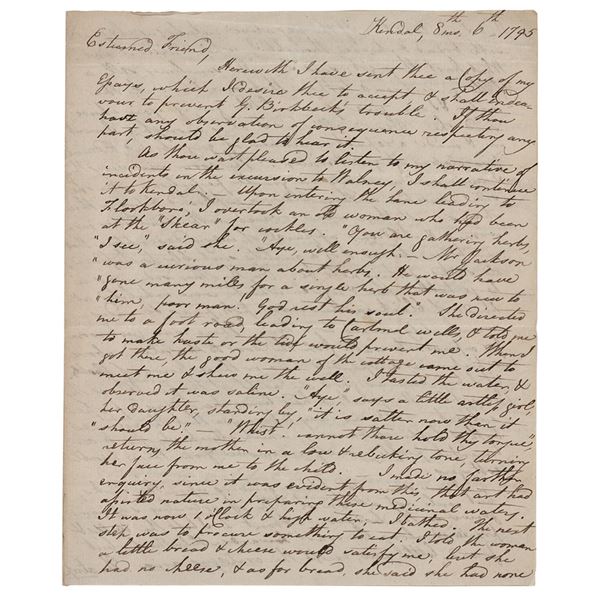 Kendal, 8th mo. 6th 1795
Esteemed Friend,
Herewith I have sent thee a Copy of my
Essays, which I desire thee to accept & shall endea
vour to prevent G. Birkbeck's trouble. If thou
have any observation of consequence respecting any
part, should be glad to hear it.
As thou wast pleased to listen to my narrative of
incidents in the excursion to Walney, I shall continue
it to Kendal. Upon entering the lane leading to
Flookboro', I overtook an old woman who had been
at the "Skear" for cockles. "You are gathering herbs,
"I see," said she. "Aye, well enough. – Mr Jackson
"was a curious man about herbs. He would have
"gone many miles for a single herb that was new to
"him, poor man. God rest his soul." She directed
me to a foot road, leading to Cartmel wells, & told me
to make haste or the tide would prevent me. When I
got there, the good woman of the cottage came out to
meet me & shew me the well. I tasted the water, &
observed it was saline. "Aye," says a little artless girl,
her daughter, standing by, "it is salter now than it
"should be." "Whist! cannot thou hold thy tongue",
returns the mother in a low & rebuking tone, turning
her face from me to the child. I made no farther
enquiry, since it was evident from this, that art had
assisted nature in preparing these medicinal waters.
It was now 1 o'Clock & high water; I bathed. The next
step was to procure something to eat. I told the woman
a little bread & cheese would satisfy me, but she
had no cheese, & as for bread, she said she had none